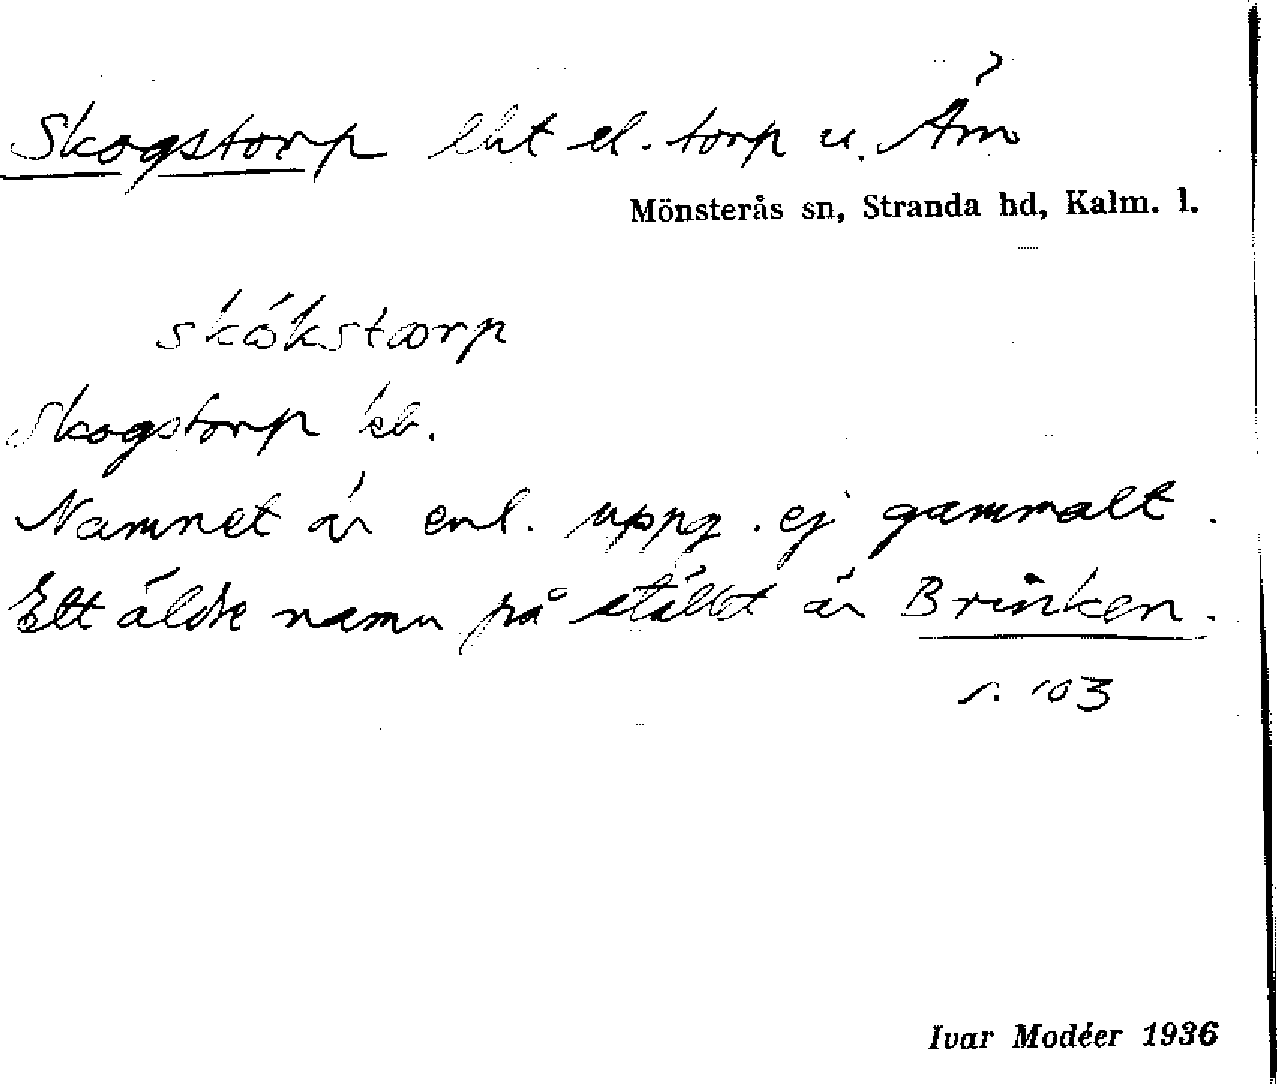 Skogstorp lht el. torp u. Åm
Mönsterås sn, Stranda hd, Kalm. l.
skókstorp
Skogstorp kb.
Namnet är enl. uppg. ej gammalt.
Ett äldre namn på stället är Brinken.
s. 103
Ivar Modéer 1936